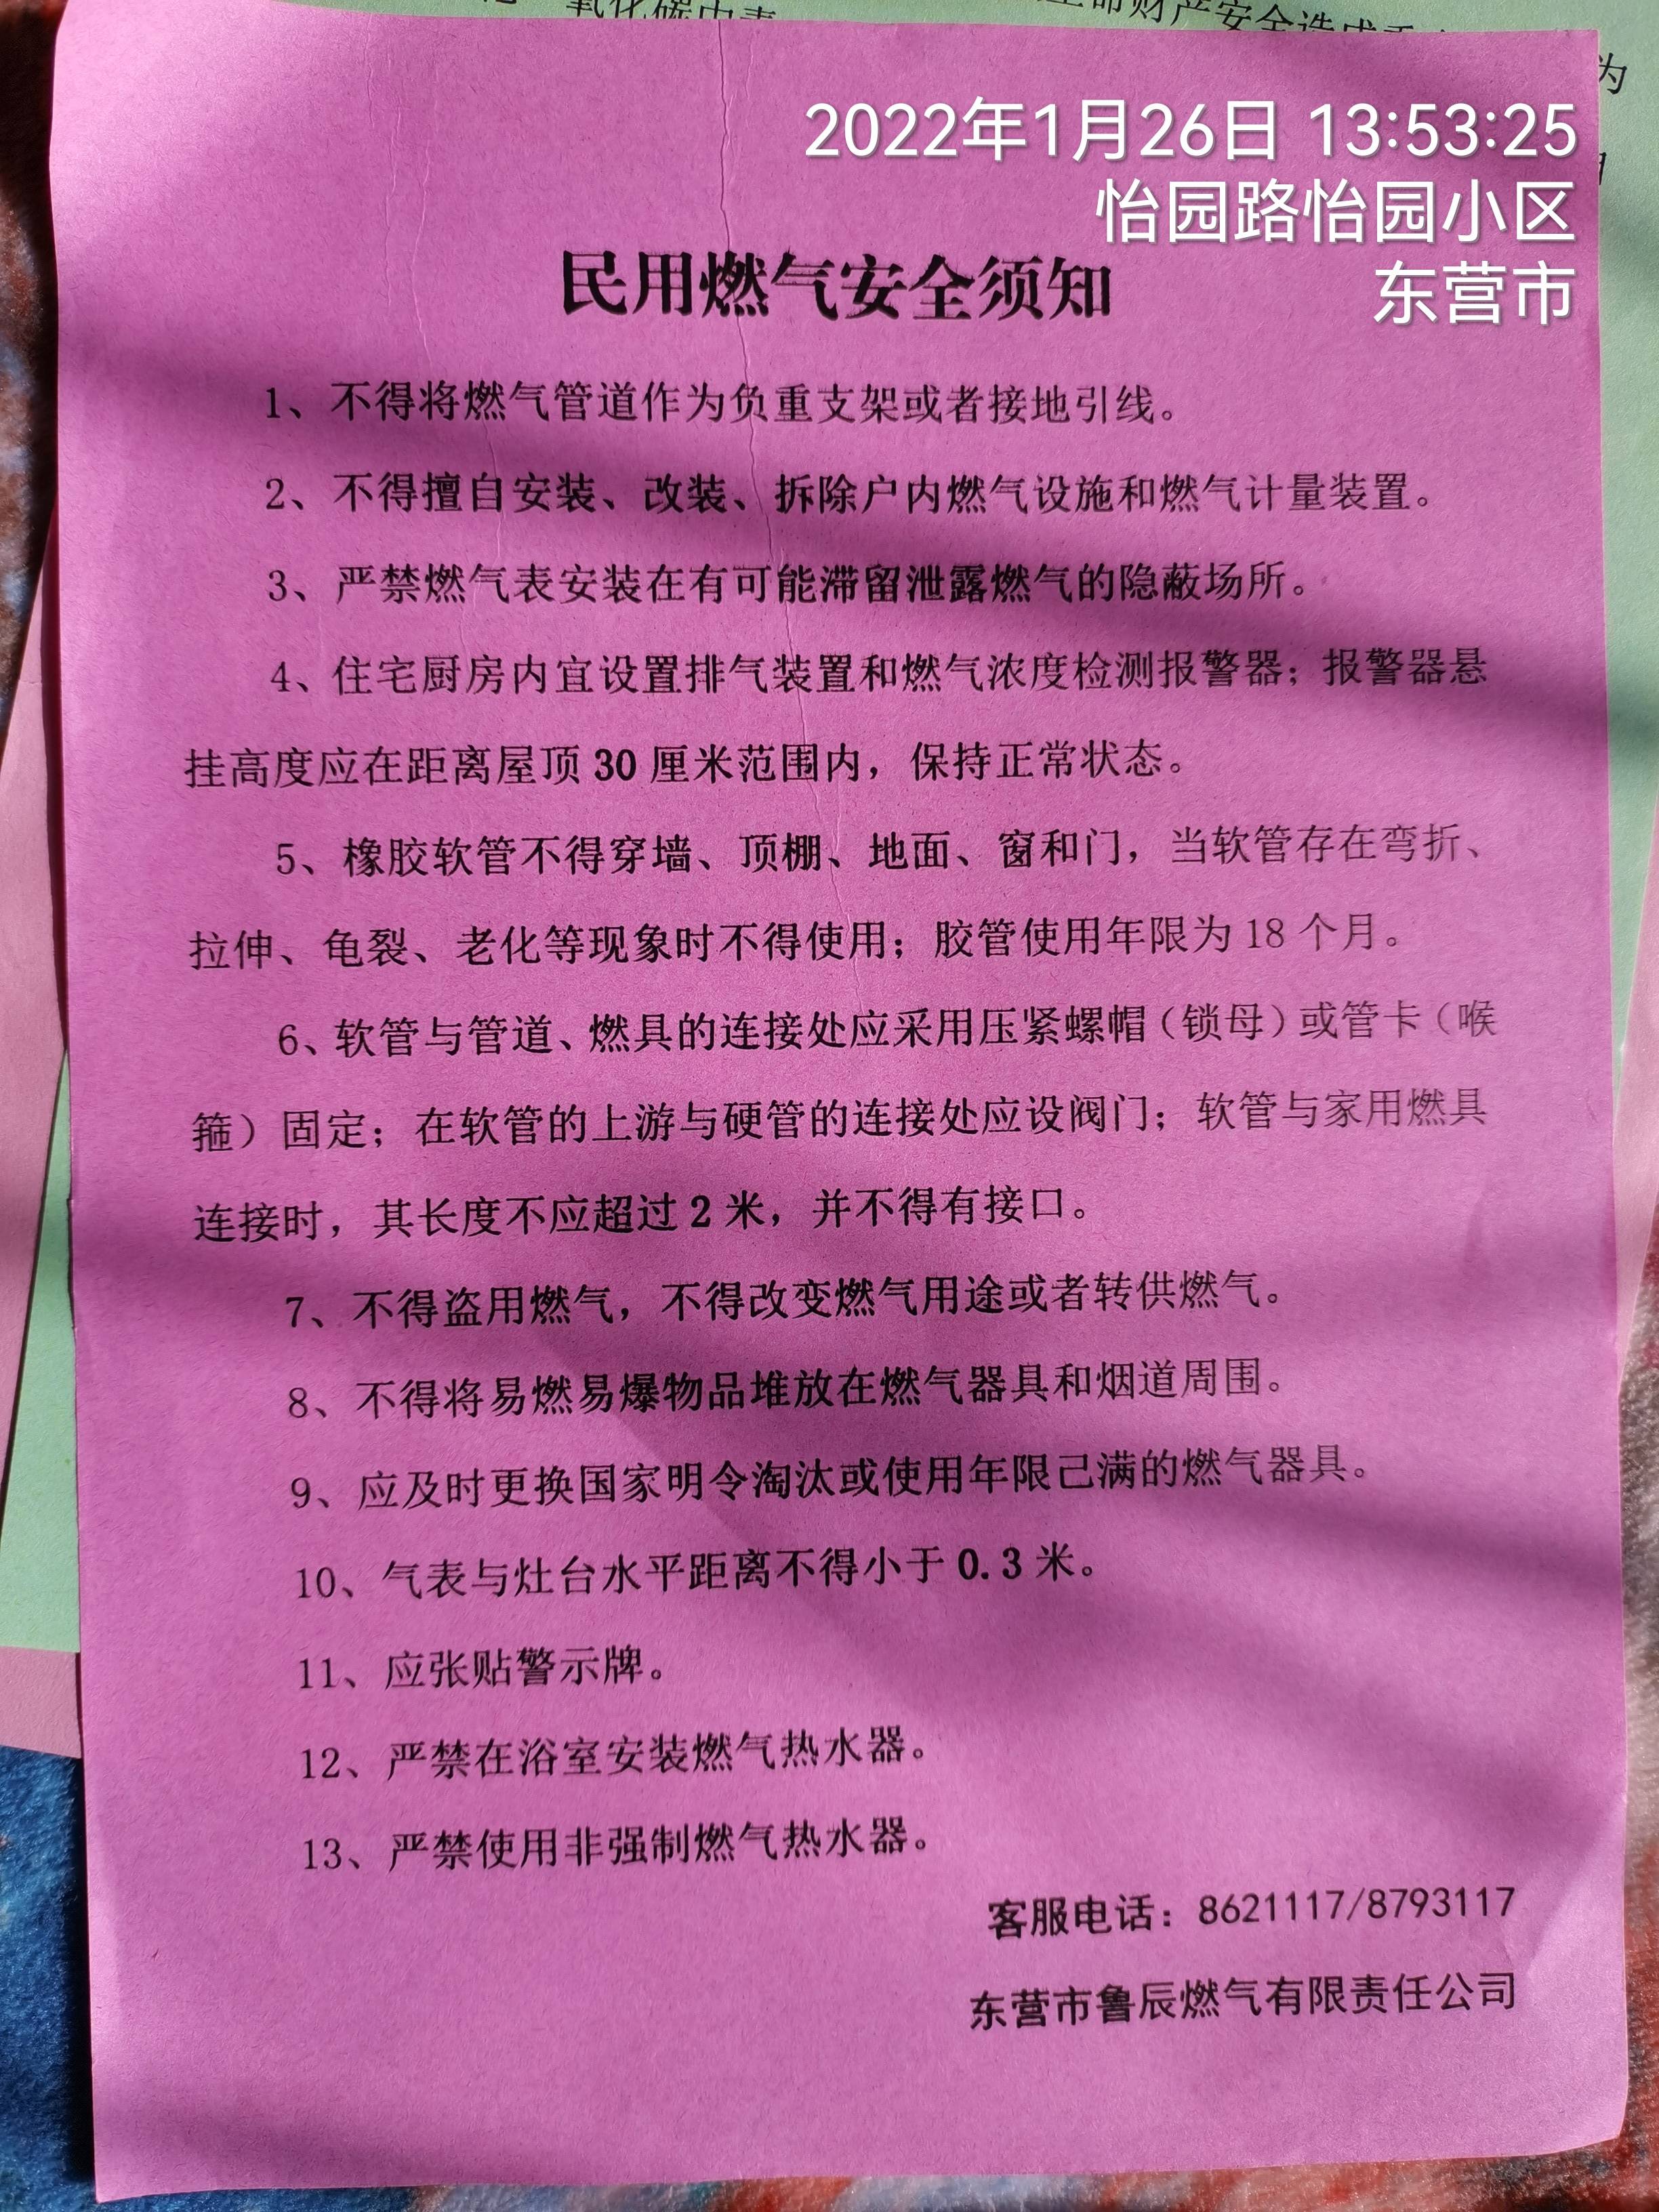 氧化碳中毒
命财产安全造成
为
2022年1月26日 13:53:25
怡园路怡园小区
东营市
民用燃气安全须知
1、不得将燃气管道作为负重支架或者接地引线。
2、不得擅自安装、改装、拆除户内燃气设施和燃气计量装置。
3、严禁燃气表安装在有可能滞留泄露燃气的隐蔽场所。
4、住宅厨房内宜设置排气装置和燃气浓度检测报警器；报警器悬
挂高度应在距离屋顶 30 厘米范围内，保持正常状态。
5、橡胶软管不得穿墙、顶棚、地面、窗和门，当软管存在弯折、
拉伸、龟裂、老化等现象时不得使用；胶管使用年限为 18 个月。
6、软管与管道、燃具的连接处应采用压紧螺帽（锁母）或管卡（喉
箍）固定；在软管的上游与硬管的连接处应设阀门；软管与家用燃具
连接时，其长度不应超过 2 米，并不得有接口。
7、不得盗用燃气，不得改变燃气用途或者转供燃气。
8、不得将易燃易爆物品堆放在燃气器具和烟道周围。
9、应及时更换国家明令淘汰或使用年限己满的燃气器具。
10、气表与灶台水平距离不得小于 0.3 米。
11、应张贴警示牌。
12、严禁在浴室安装燃气热水器。
13、严禁使用非强制燃气热水器。
客服电话：8621117/8793117
东营市鲁辰燃气有限责任公司